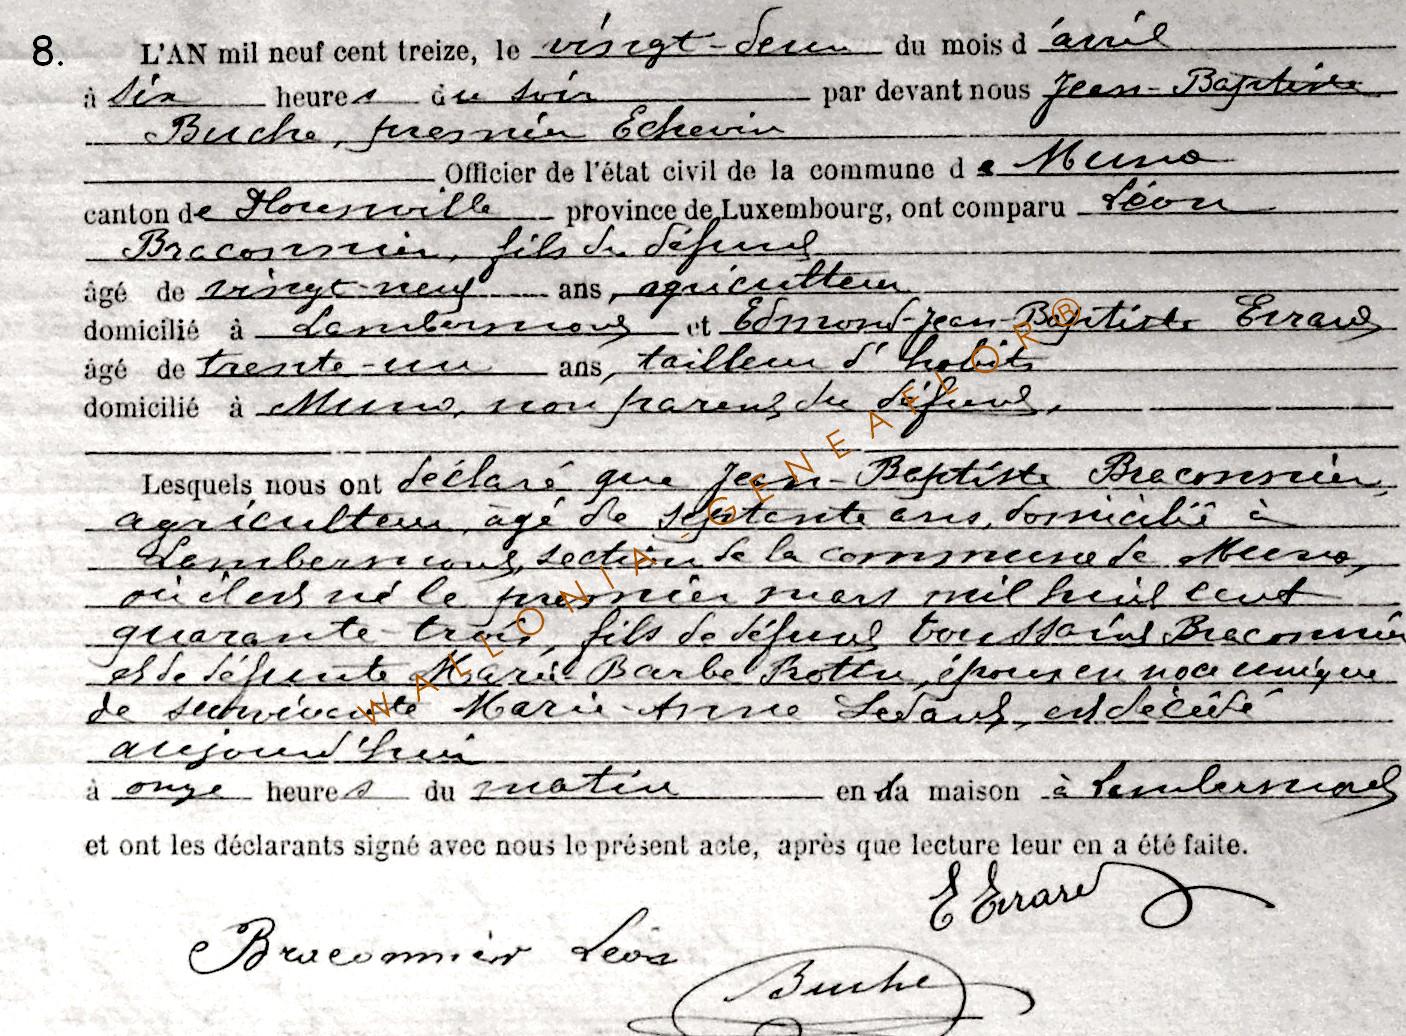 8.
L'AN mil neuf cent treize, le vingt-deux du mois d'avril
à six heures du soir par devant nous Jean-Baptiste
Buche, premier Echevin
Officier de l'état civil de la commune de Muno
canton de Florenville province de Luxembourg, ont comparu Léon
Braconnier, fils du défunt
âgé de vingt-neuf ans, agriculteur
domicilié à Lambermont et Edmond-Jean-Baptiste Errard
âgé de trente-un ans, tailleur d'habits
domicilié à Muno, non parent du défunt,
Lesquels nous ont déclaré que Jean-Baptiste Braconnier,
agriculteur, âgé de septante ans, domicilié à
Lambermont, section de la commune de Muno,
où il est né le premier mars mil huit cent
quarante-trois, fils de défunt Toussaint Braconnier
et de défunte Marie Barbe Rottu, époux en noce unique
de survivante Marie-Anne Ledant, est décédé
aujourd'hui
à onze heures du matin en sa maison à Lambermont
et ont les déclarants signé avec nous le présent acte, après que lecture leur en a été faite.
E Errard
Braconnier Léon
Buche
WALLONIA - GENEAFLOR®